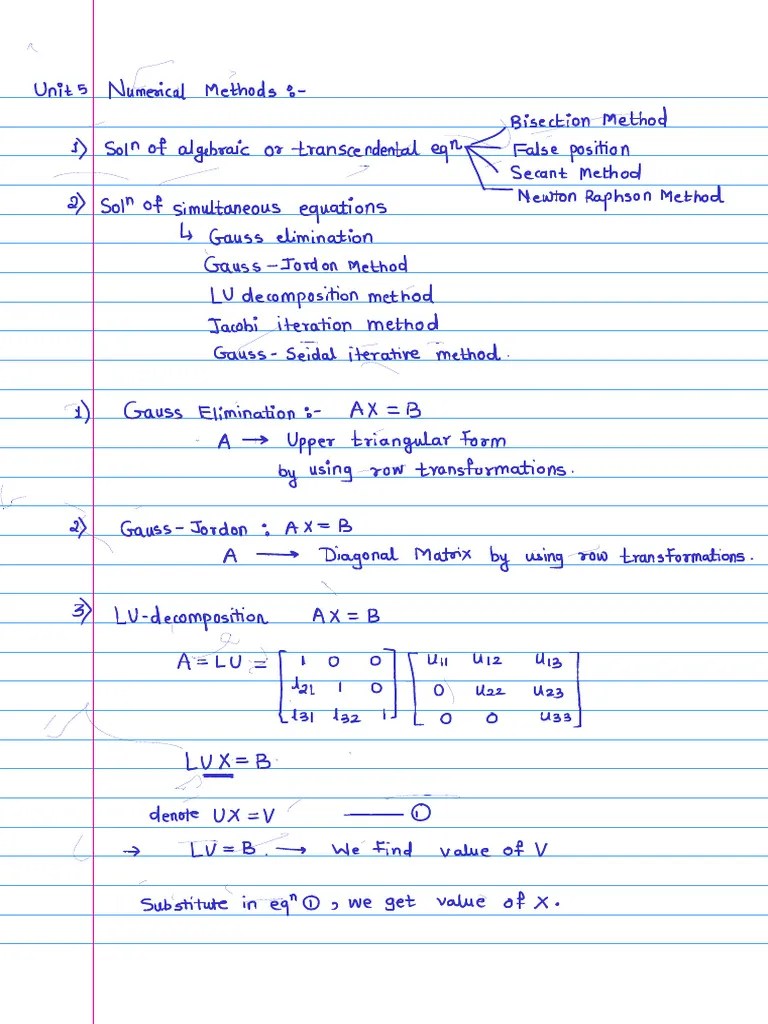 Unit 5 Numerical Methods :-
1) Solⁿ of algebraic or transcendental eqⁿ
Bisection Method
False position
Secant Method
Newton Raphson Method
2) Solⁿ of simultaneous equations
↳ Gauss elimination
Gauss-Jordon Method
LU decomposition method
Jacobi iteration method
Gauss-Seidal iterative method.
1) Gauss Elimination :- AX = B
A → Upper triangular form
by using row transformations.
2) Gauss-Jordon : AX = B
A → Diagonal Matrix by using row transformations.
3) LU-decomposition AX = B
A = LU = [1 0 0] [u11 u12 u13]
[l21 1 0] [0 u22 u23]
[l31 l32 1] [0 0 u33]
LUX = B
denote UX = V —— ①
→ LV = B. → We find value of V
Substitute in eqⁿ ①, we get value of X.